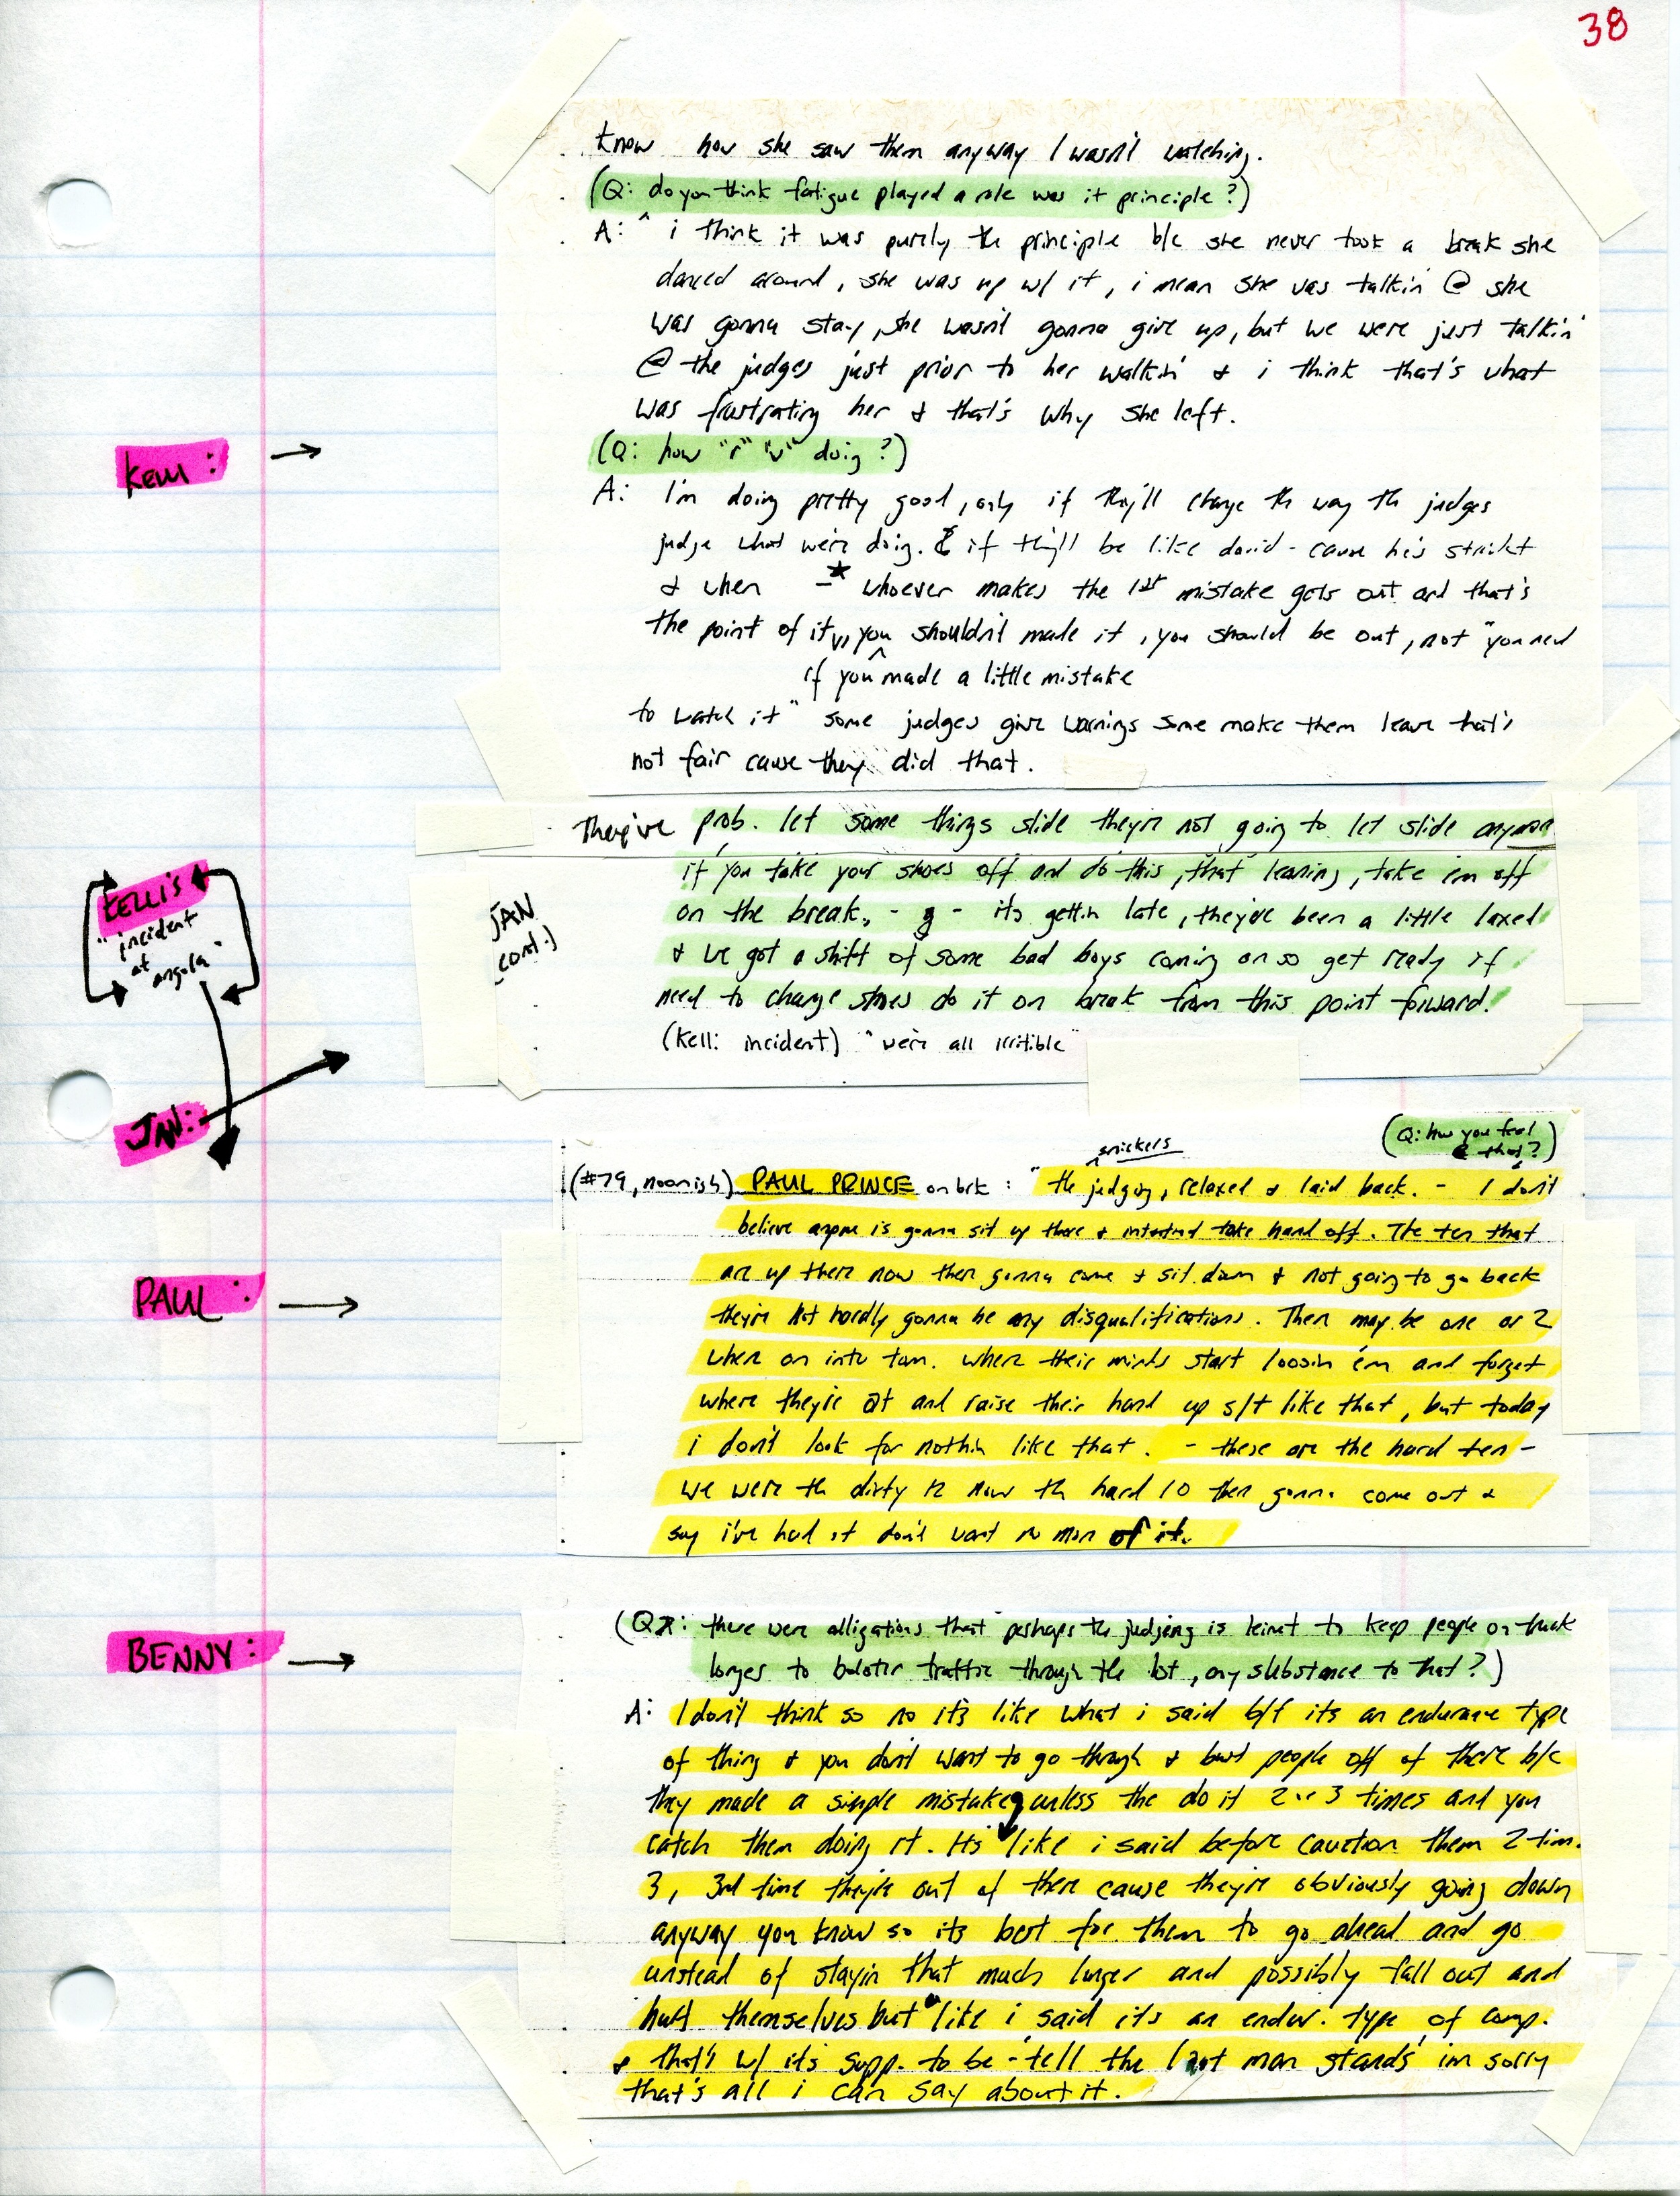 38
know how she saw them anyway I wasn't watching.
(Q: do you think fatigue played a role was it principle?)
A: i think it was purely the principle b/c she never took a break she
danced around, she was up w/ it, i mean she was talkin @ she
was gonna stay, she wasn't gonna give up, but we were just talkin'
@ the judges just prior to her walkin' & i think that's what
was frustrating her & that's why she left.
Kelli:
(Q: how "r" "u" doing?)
A: I'm doing pretty good, only if they'll change th way th judges
judge what we're doing. & if they'll be like david - cause he's strickt
& when - * whoever makes the 1st mistake gets out and that's
the point of it, you shouldn't made it, you should be out, not "you need
if you made a little mistake
to watch it" some judges give warnings some make them leave that's
not fair cause they did that.
They've prob. let some things slide they're not going to let slide anymore
if you take your shoes off and do this, that leaning, take em off
on the break, - g - its gettin late, they've been a little laxed
& we got a shift of some bad boys coming on so get ready if
need to change shoes do it on break from this point forward.
(Kell: incident) "we're all irritible"
JAN
cont.)
KELLI'S
"incident
at angola"
JAN:
(Q: how you feel
@ that?)
snickers
(#79, noonish) PAUL PRINCE on brk: "the judging, relaxed & laid back. - I don't
believe anyone is gonna sit up there & take hand off. The ten that
are up there now then gonna come & sit down & not going to go back
they're not hardly gonna be any disqualifications. Then may be one or 2
when on into tom. where their minds start loosin 'em and forget
where they're at and raise their hand up s/t like that, but today
i don't look for nothin like that. - these are the hard ten -
we were th dirty 12 now th hard 10 then gonna come out &
say i've had it don't want no more of it.
PAUL:
BENNY:
(Q: there were alligations that perhaps the judging is to keep people on truck
longer to bolster traffic through the lot, any substance to that?)
A: I don't think so no it's like what i said b/f its an endurance type
of thing & you don't want to go through & bust people off of there b/c
they made a simple mistake, unless the do it 2 or 3 times and you
catch them doing it. It's like i said before caution them 2 tim.
3, 3rd time they're out of there cause they're obviously going down
anyway you know so its best for them to go ahead and go
instead of stayin that much longer and possibly fall out and
hurt themselves but like i said its an endur. type of comp.
& that's w/ it's supp. to be - tell the last man stands' im sorry
that's all i can say about it.